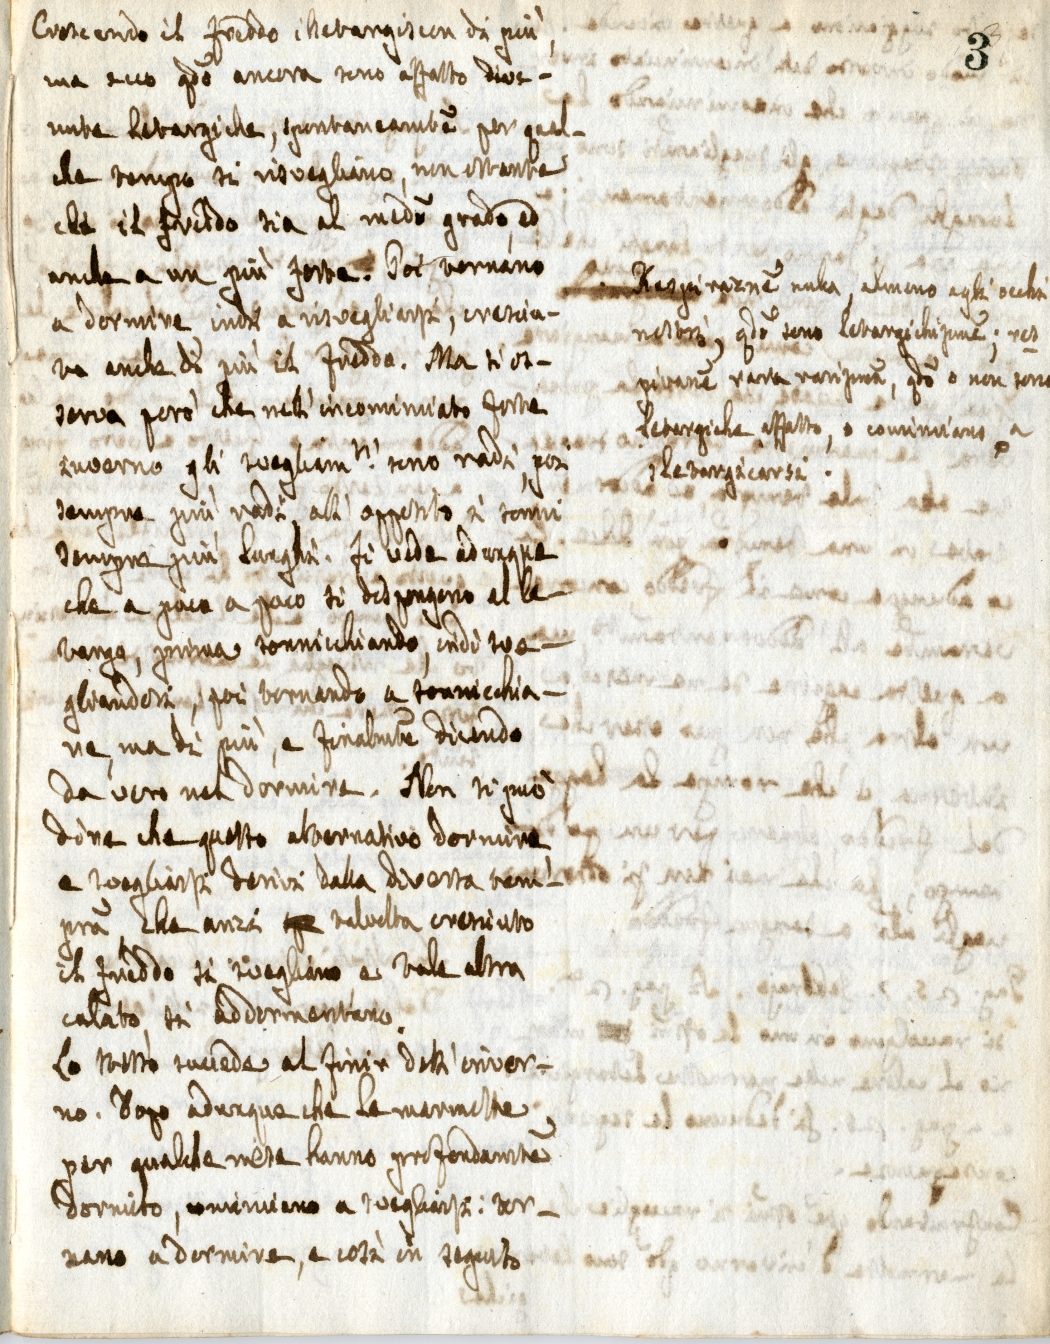 3
Crescendo il freddo iletargiscon di più,
ma ecco qdo ancora sono affatto dive-
nute letargiche, spontaneamte per qual-
che tempo si risvegliano, non ostante
che il freddo sia al medmo grado, ed
anche a un più forte. Poi tornano
a dormire indi a risvegliarsi, cresciu-
to anche di più il freddo. Ma si os-
serva però che nell'incominciato forte
inverno gli svegliamti sono radi, poi
sempre più radi, all'opposito i sonni
sempre più lunghi. Si vede adunque
che a poco a poco si dispongono al le-
targo, prima sonnicchiando, indi sve-
gliandosi, poi tornando a sonnicchia-
re, ma di più, e finalmte dicendo
da vero nel dormire. Non si può
dire che questo alternativo dormire
e svegliarsi derivi dalla diversa tem-
pra, che anzi talvolta cresciuto
il freddo si svegliano, e tale altra
calato, si addormentano.
Lo stesso succede al finir dell'inver-
no. Dopo adunque che le marmotte
per qualche mese hanno profondamte
dormito, cominciano a svegliarsi: tor-
nano a dormire, e così in seguito
Respirazne nulla, almeno agli occhi
nostri, qdo sono letargichissime; res
pirazne rara rarissima, qdo o non sono
letargiche affatto, o cominciano a
iletargicarsi.